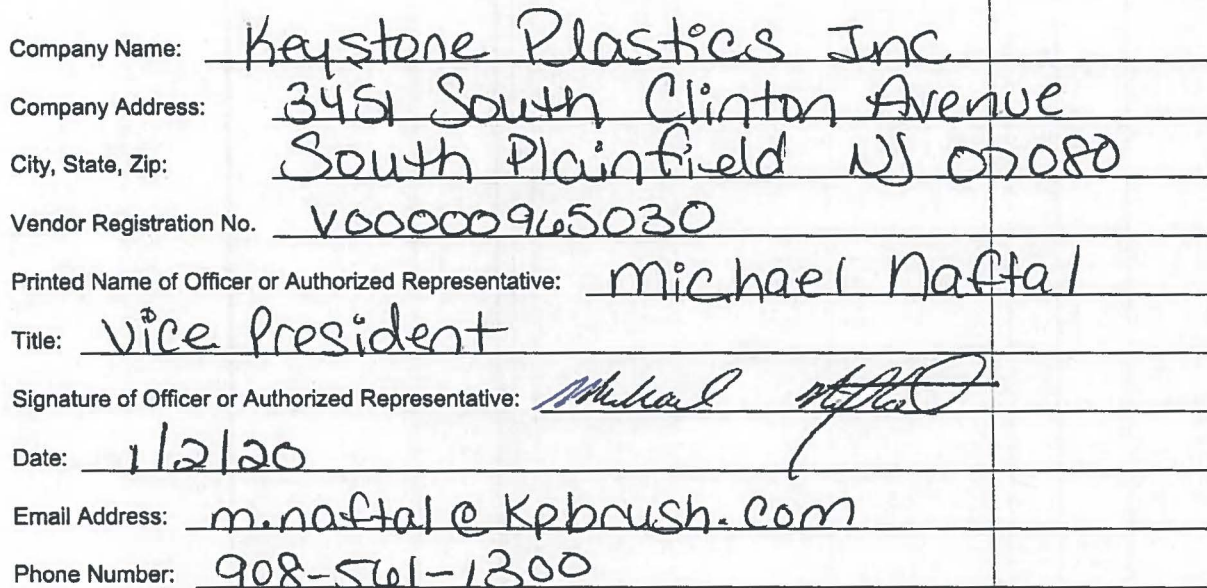 Company Name: Keystone Plastics Inc
Company Address: 3451 South Clinton Avenue
City, State, Zip: South Plainfield NJ 07080
Vendor Registration No. V00000965030
Printed Name of Officer or Authorized Representative: Michael Naftal
Title: Vice President
Signature of Officer or Authorized Representative: Michael Naftal
Date: 1/2/20
Email Address: m.naftal@kpbrush.com
Phone Number: 908-561-1300